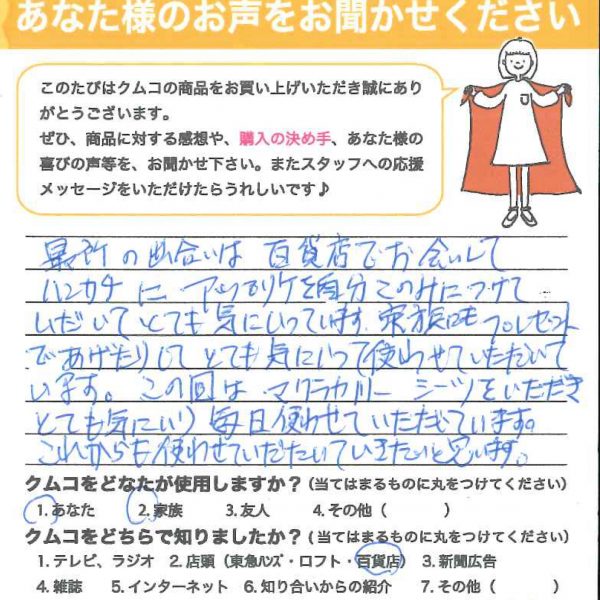 あなた様のお声をお聞かせください
このたびはクムコの商品をお買い上げいただき誠にあり
がとうございます。
ぜひ、商品に対する感想や、購入の決め手、あなた様の
喜びの声等を、お聞かせ下さい。またスタッフへの応援
メッセージをいただけたらうれしいです♪
最所の出合いは 百貨店でお会いして
ハンカチに アップリケを自分このみにつけて
いだいてとても気にいっています。家族にもプレゼント
であげたりしてとても気にいって使わせていただいて
います。この回は シーツをいただき
とても気にいり毎日使わせていただいています。
これからも使わせていただいていきたいと思います。
クムコをどなたが使用しますか？（当てはまるものに丸をつけてください）
1. あなた 2. 家族 3. 友人 4. その他（ ）
クムコをどちらで知りましたか？（当てはまるものに丸をつけてください）
1. テレビ、ラジオ 2. 店頭（東急ハンズ・ロフト・百貨店） 3. 新聞広告
4. 雑誌 5. インターネット 6. 知り合いからの紹介 7. その他（ ）